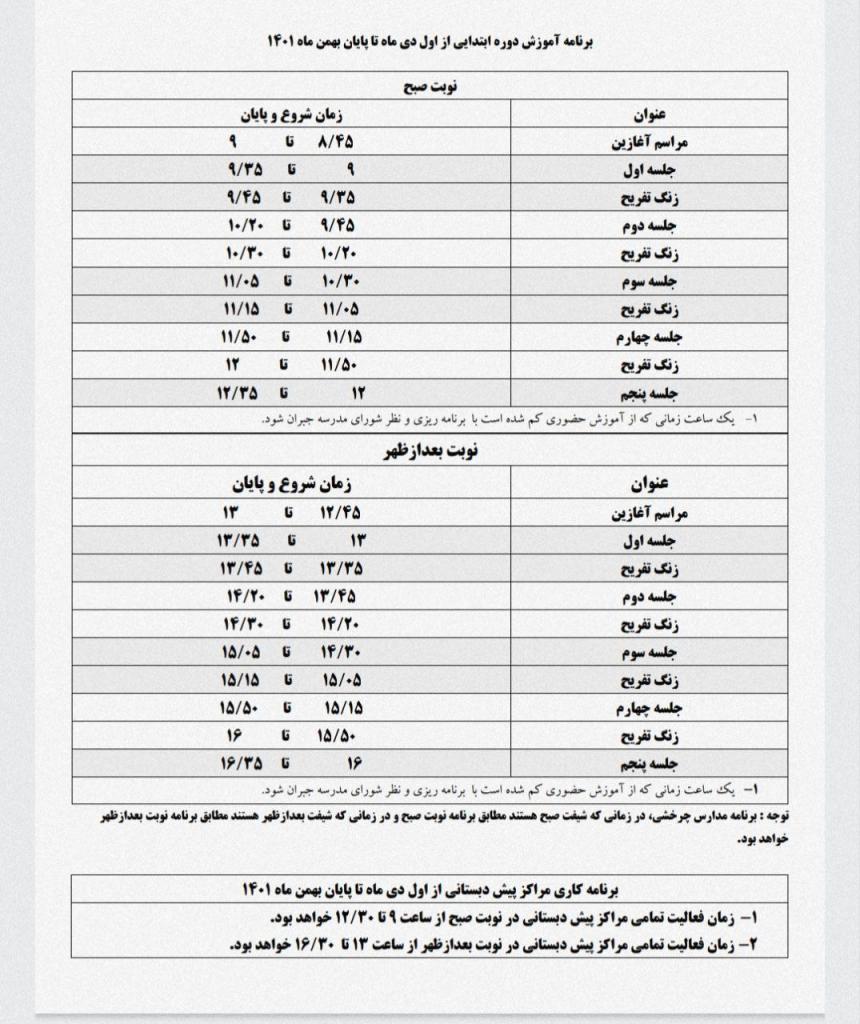 برنامه آموزش دوره ابتدایی از اول دی ماه تا پایان بهمن ماه ۱۴۰۱
نوبت صبح
عنوان زمان شروع و پایان
مراسم آغازین ۸/۴۵ تا ۹
جلسه اول ۹ تا ۹/۳۵
زنگ تفریح ۹/۳۵ تا ۹/۴۵
جلسه دوم ۹/۴۵ تا ۱۰/۲۰
زنگ تفریح ۱۰/۲۰ تا ۱۰/۳۰
جلسه سوم ۱۰/۳۰ تا ۱۱/۰۵
زنگ تفریح ۱۱/۰۵ تا ۱۱/۱۵
جلسه چهارم ۱۱/۱۵ تا ۱۱/۵۰
زنگ تفریح ۱۱/۵۰ تا ۱۲
جلسه پنجم ۱۲ تا ۱۲/۳۵
۱- یک ساعت زمانی که از آموزش حضوری کم شده است با برنامه ریزی و نظر شورای مدرسه جبران شود.
نوبت بعدازظهر
عنوان زمان شروع و پایان
مراسم آغازین ۱۲/۴۵ تا ۱۳
جلسه اول ۱۳ تا ۱۳/۳۵
زنگ تفریح ۱۳/۳۵ تا ۱۳/۴۵
جلسه دوم ۱۳/۴۵ تا ۱۴/۲۰
زنگ تفریح ۱۴/۲۰ تا ۱۴/۳۰
جلسه سوم ۱۴/۳۰ تا ۱۵/۰۵
زنگ تفریح ۱۵/۰۵ تا ۱۵/۱۵
جلسه چهارم ۱۵/۱۵ تا ۱۵/۵۰
زنگ تفریح ۱۵/۵۰ تا ۱۶
جلسه پنجم ۱۶ تا ۱۶/۳۵
۱- یک ساعت زمانی که از آموزش حضوری کم شده است با برنامه ریزی و نظر شورای مدرسه جبران شود.
توجه : برنامه مدارس چرخشی، در زمانی که شیفت صبح هستند مطابق برنامه نوبت صبح و در زمانی که شیفت بعدازظهر هستند مطابق برنامه نوبت بعدازظهر
خواهد بود.
برنامه کاری مراکز پیش دبستانی از اول دی ماه تا پایان بهمن ماه ۱۴۰۱
۱- زمان فعالیت تمامی مراکز پیش دبستانی در نوبت صبح از ساعت ۹ تا ۱۲/۳۰ خواهد بود.
۲- زمان فعالیت تمامی مراکز پیش دبستانی در نوبت بعدازظهر از ساعت ۱۳ تا ۱۶/۳۰ خواهد بود.